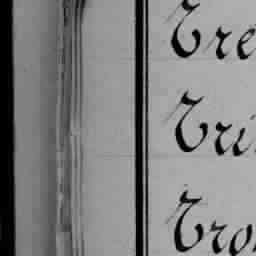 Tre
Tri
Tro